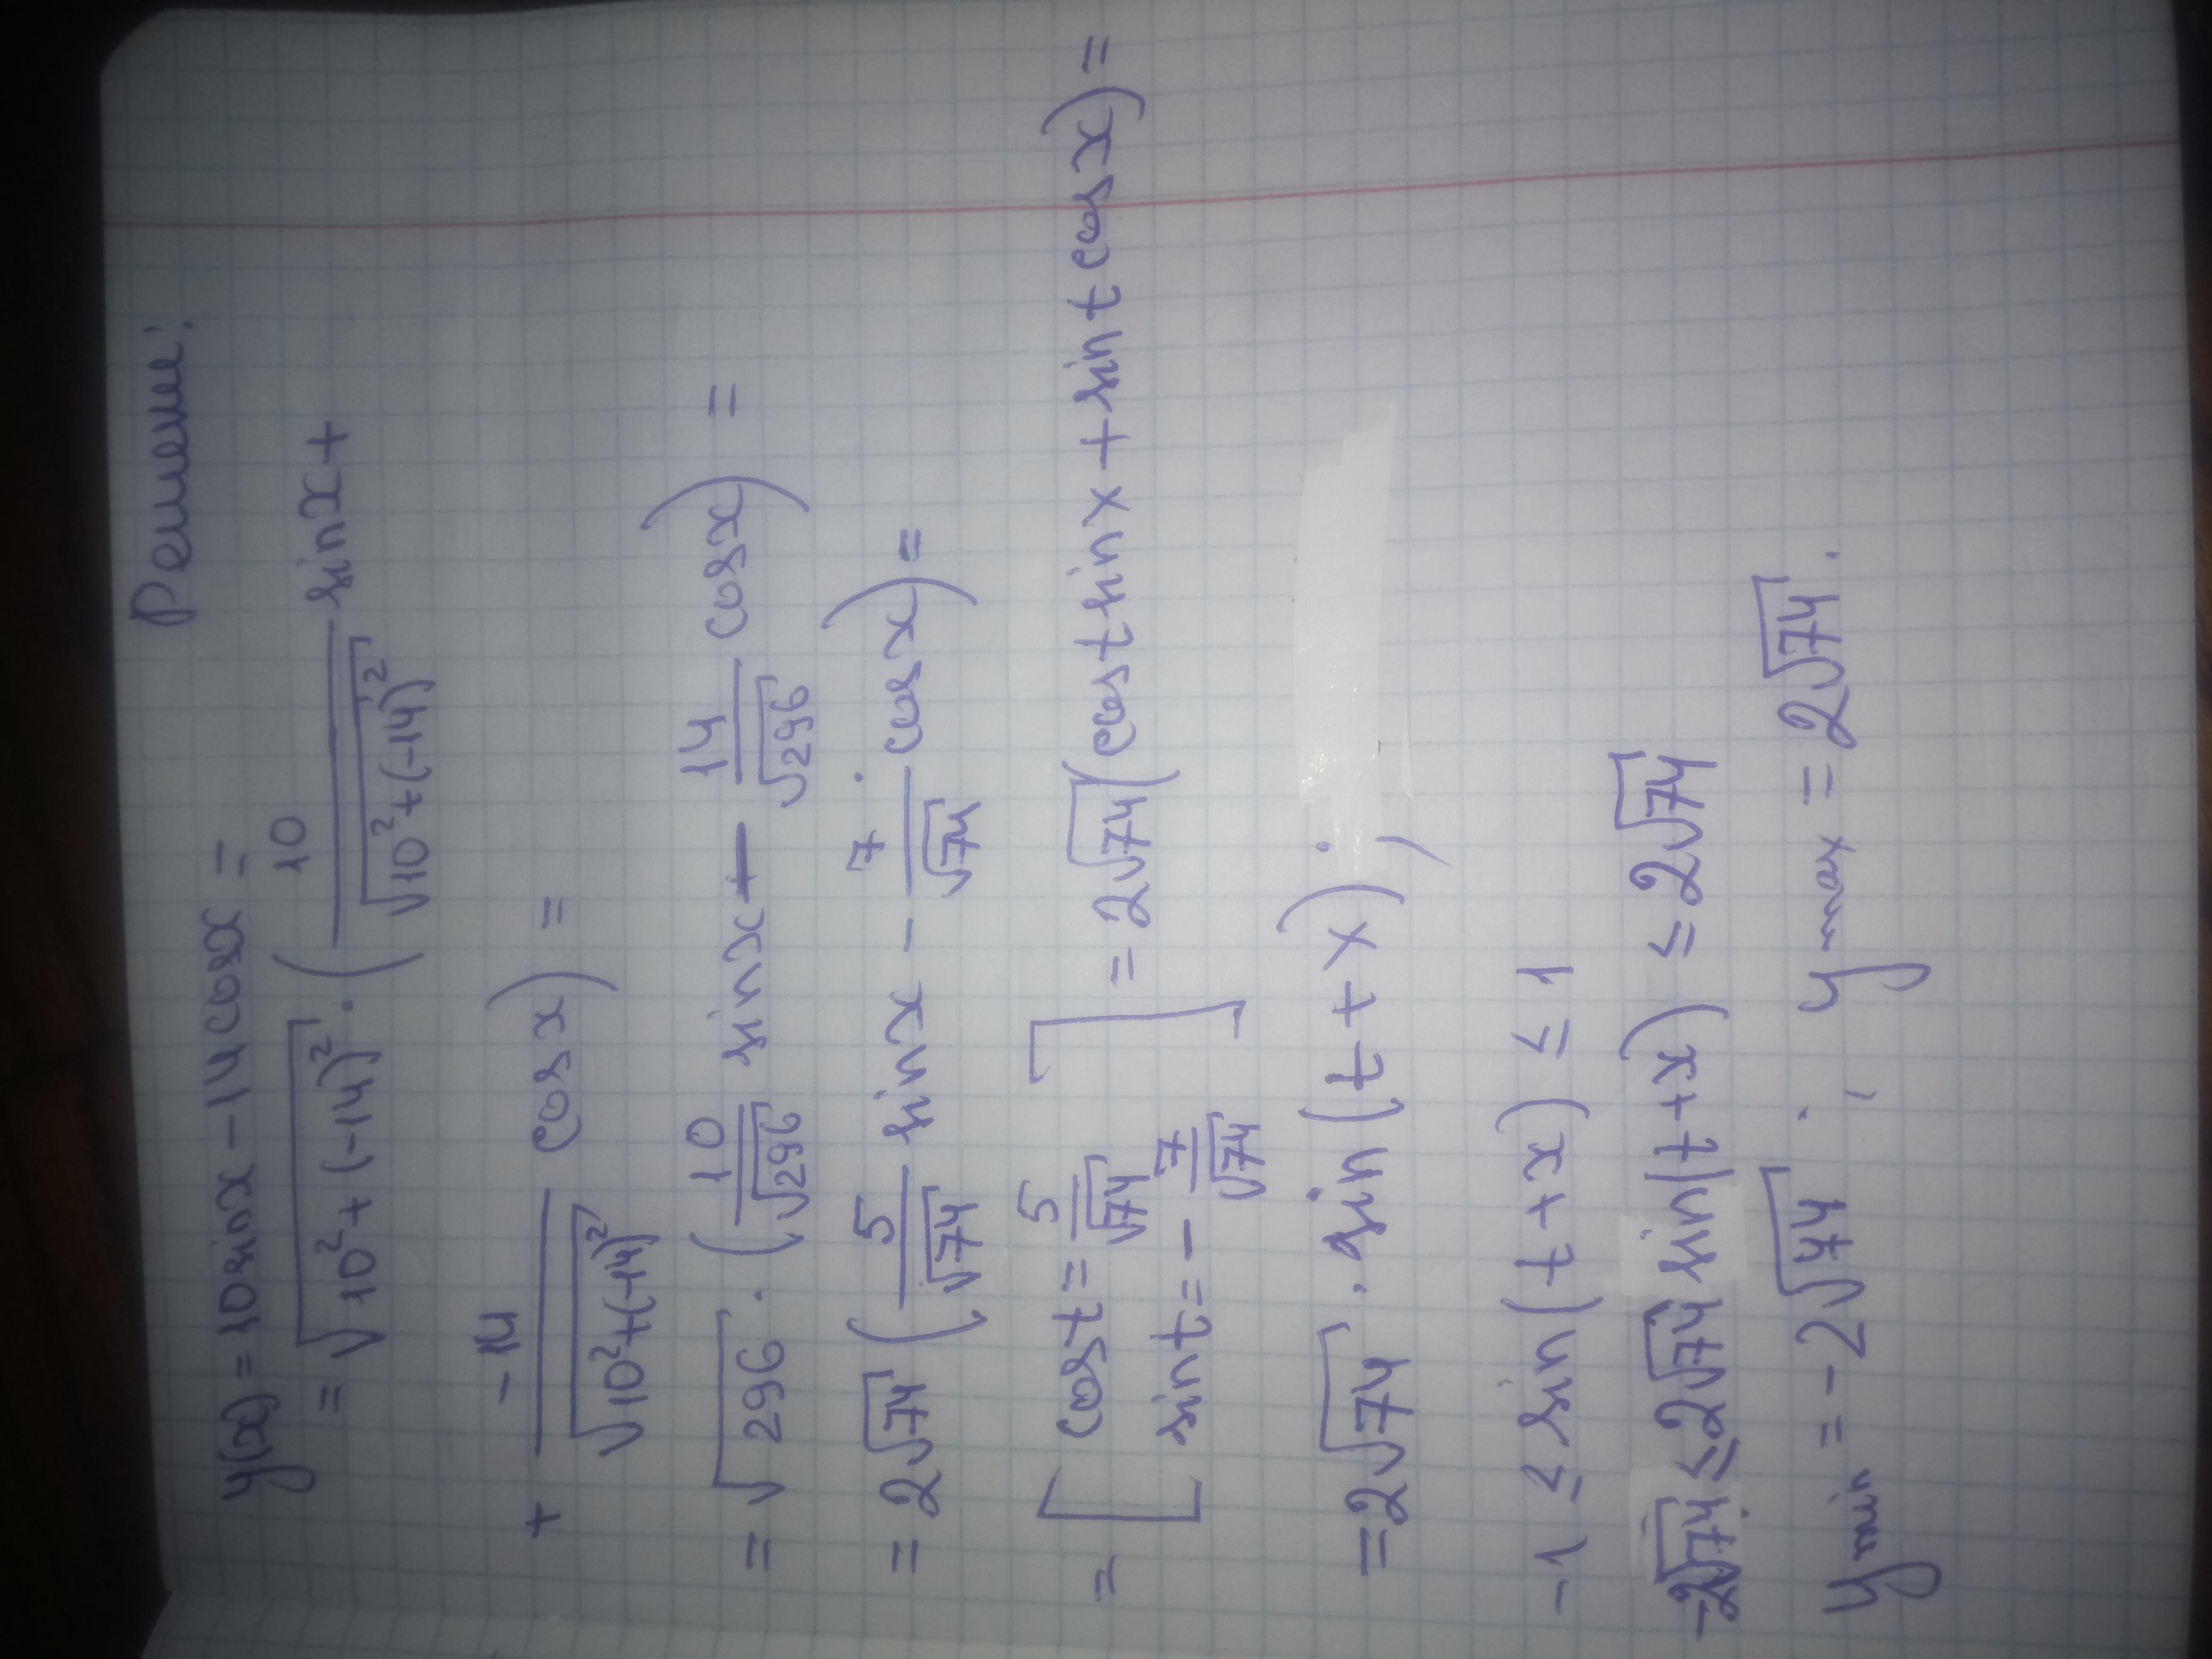 Решение:
y(x) = 10sinx - 14cosx =
= √(10² + (-14)²) · (10/√(10² + (-14)²) sinx +
+ -14/√(10² + (-14)²) cosx) =
= √296 · (10/√296 sinx - 14/√296 cosx) =
= 2√74 (5/√74 sinx - 7/√74 cosx) =
= [cost = 5/√74
sint = - 7/√74] = 2√74 (cost sinx + sint cosx) =
= 2√74 · sin(t + x);
-1 ≤ sin(t + x) ≤ 1
-2√74 ≤ 2√74 sin(t + x) ≤ 2√74
y min = -2√74; y max = 2√74.